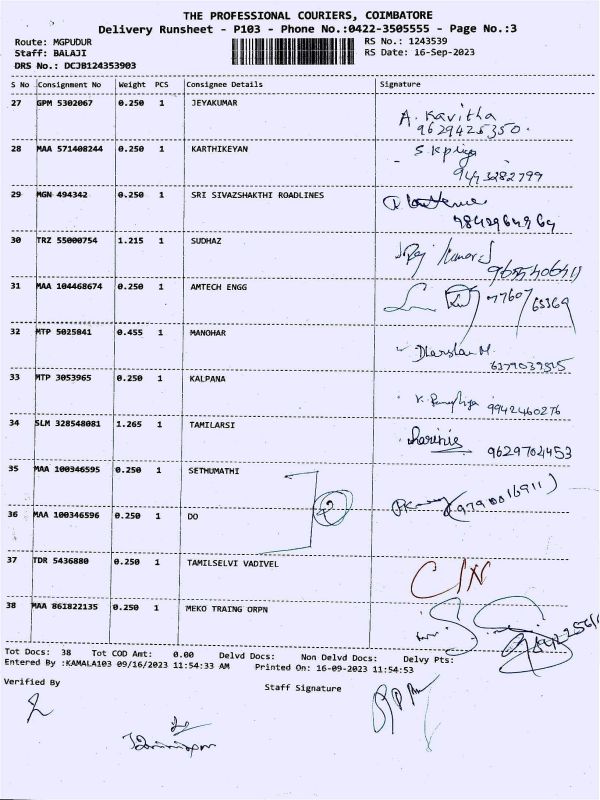 THE PROFESSIONAL COURIERS, COIMBATORE
Delivery Runsheet - P103 - Phone No.:0422-3505555 - Page No.:3
Route: MGPUDUR RS No.: 1243539
Staff: BALAJI RS Date: 16-Sep-2023
DRS No.: DCJB124353903
S No Consignment No Weight PCS Consignee Details Signature
27 GPM 5302067 0.250 1 JEYAKUMAR A. Kavitha
9629425350.
28 MAA 571408244 0.250 1 KARTHIKEYAN S.Kpriya
9473282799
29 MGN 494342 0.250 1 SRI SIVAZSHAKTHI ROADLINES
9842964964
30 TRZ 55000754 1.215 1 SUDHAZ
31 MAA 104468674 0.250 1 AMTECH ENGG 77607/65369
32 MTP 5025841 0.455 1 MANOHAR Dharshan M.
6379039515
33 MTP 3053965 0.250 1 KALPANA 9942460276
34 SLM 328548081 1.265 1 TAMILARSI Harinie
9629704453
35 MAA 100346595 0.250 1 SETHUMATHI
36 MAA 100346596 0.250 1 DO
37 TDR 5436880 0.250 1 TAMILSELVI VADIVEL C/N
38 MAA 861822135 0.250 1 MEKO TRAING ORPN
Tot Docs: 38 Tot COD Amt: 0.00 Delvd Docs: Non Delvd Docs: Delvy Pts:
Entered By :KAMALA103 09/16/2023 11:54:33 AM Printed On: 16-09-2023 11:54:53
Verified By Staff Signature